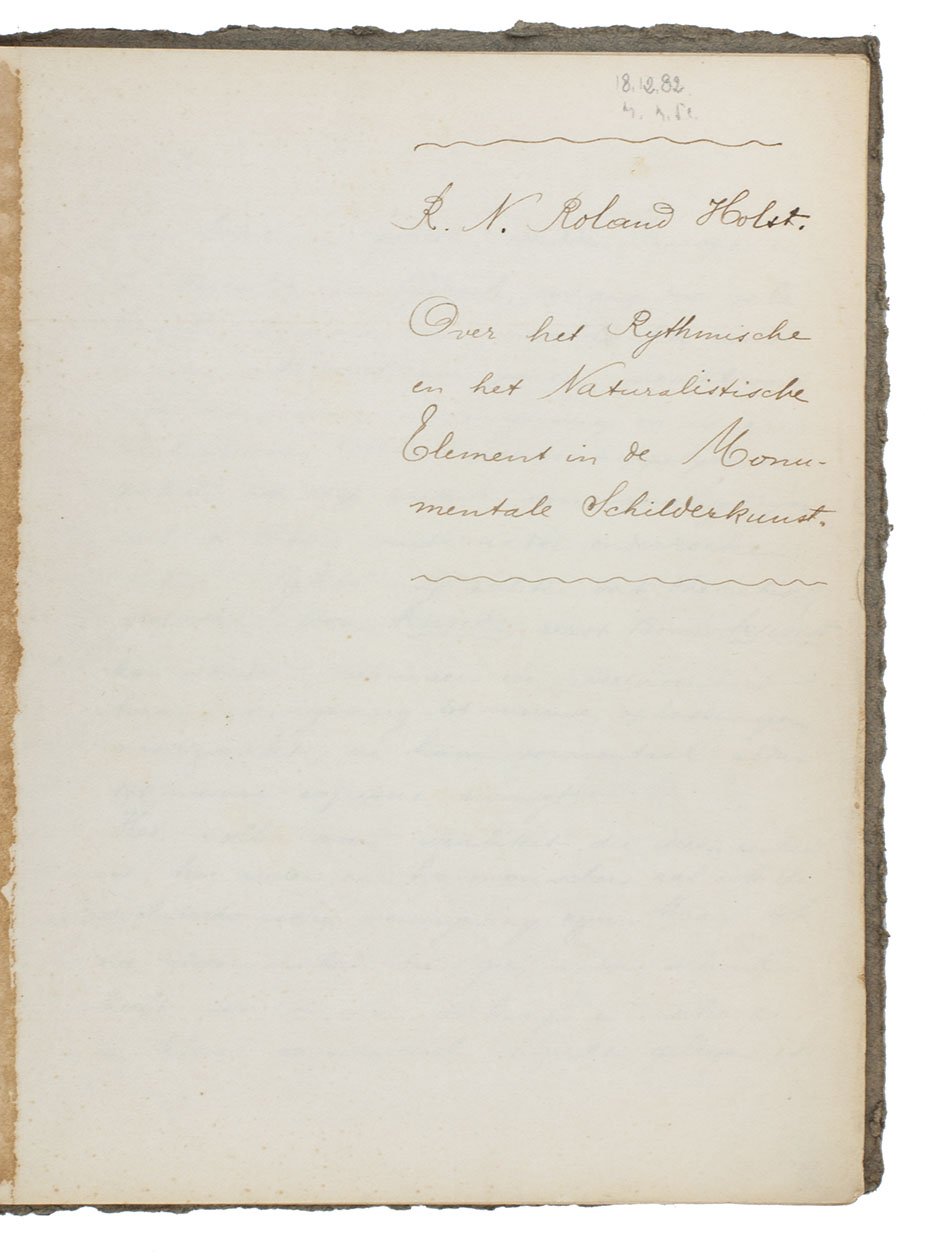 18.12.82
R. N. Roland Holst.
Over het Rythmische
en het Naturalistische
Element in de Monu-
mentale Schilderkunst.